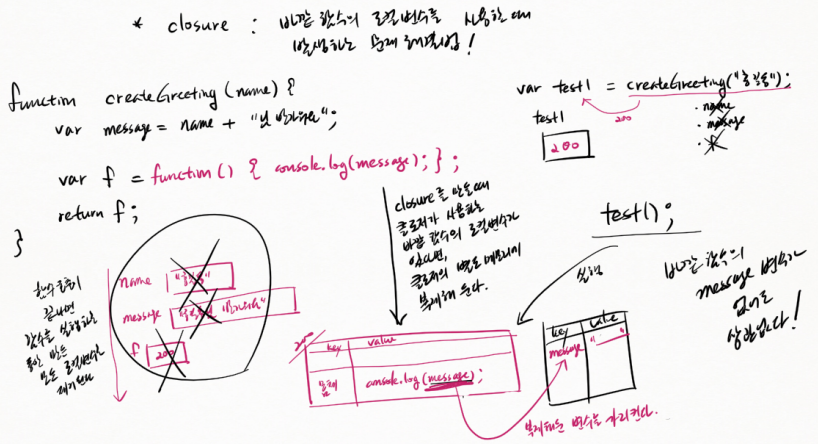 * closure : 바깥 함수의 로컬변수를 사용할 때
발생하는 문제 해결법!
function createGreeting(name) {
var message = name + "님 반가워요";
var f = function() { console.log(message); };
return f;
}
var test1 = createGreeting("홍길동");
test1
200
200
· name
· message
· f
closure를 만들 때
클로저가 사용하는
바깥 함수의 로컬변수가
있다면,
클로저의 별도 메모리에
복제해 둔다.
test1();
실행
바깥 함수의
message 변수가
없어도
상관없다!
함수 호출이
끝나면
함수를 실행하는
동안 만든
모든 로컬변수는
제거된다
name "홍길동"
message "홍길동님 반가워요"
f 200
200
key value
console.log(message);
key value
message " "
복제해둔 변수를 가리킨다.